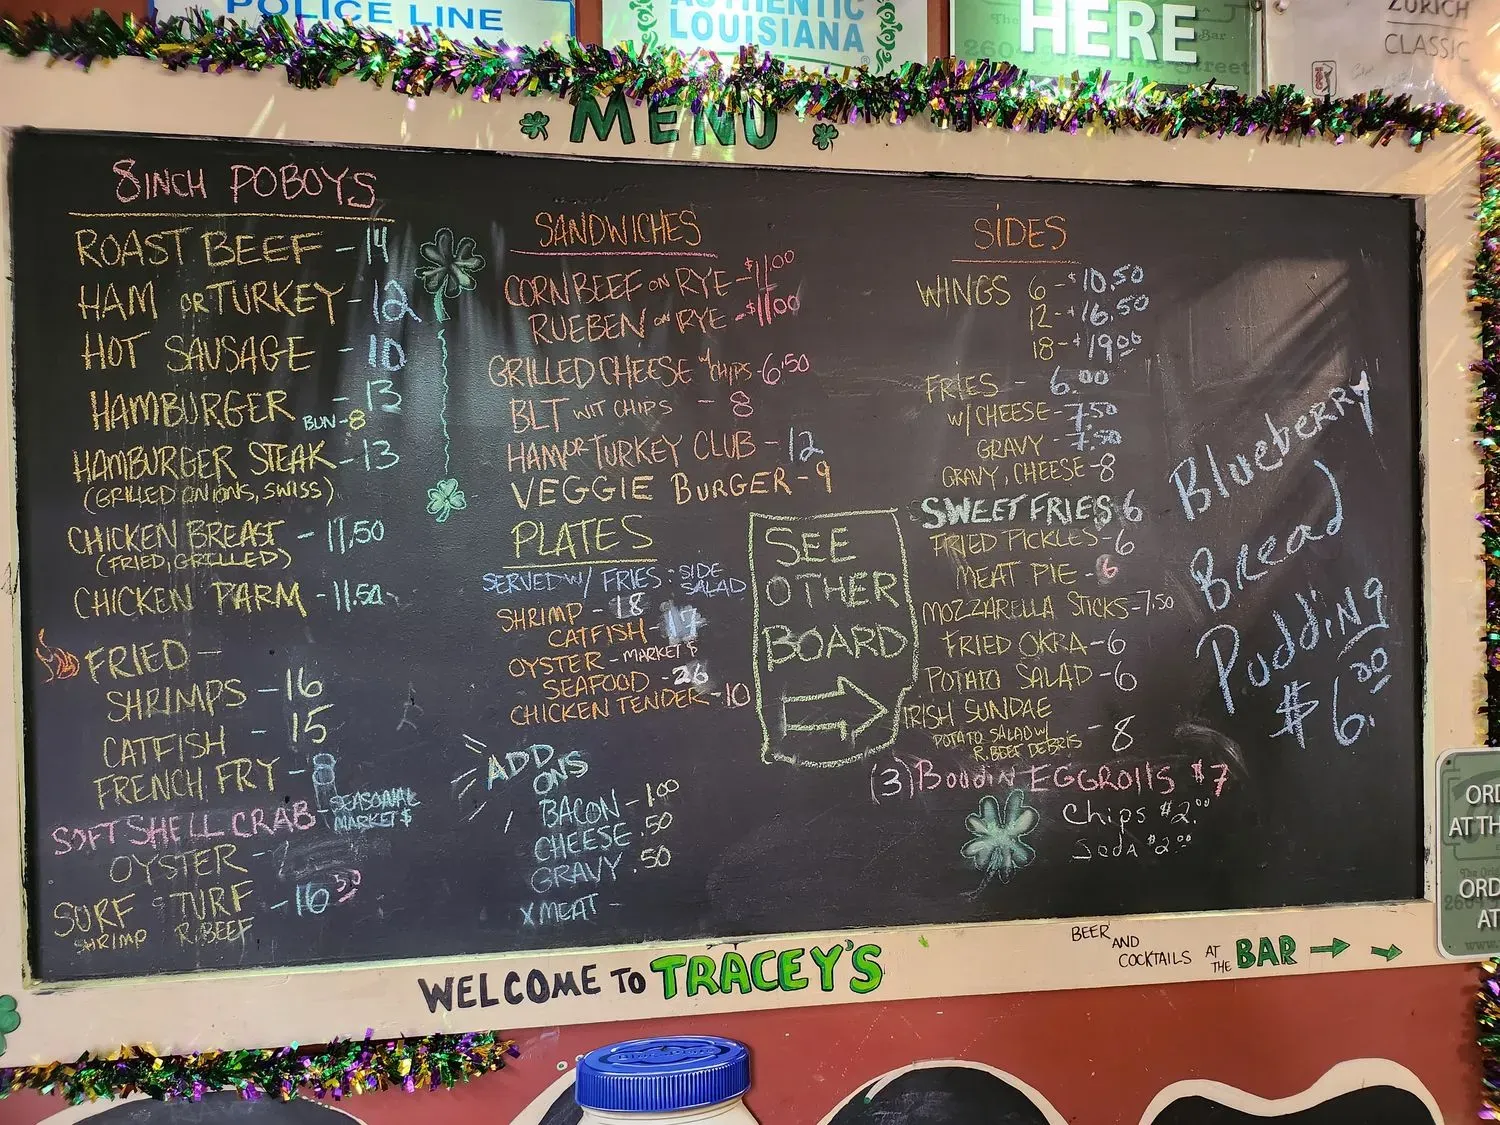 POLICE LINE
AUTHENTIC
LOUISIANA
HERE
ZURICH
CLASSIC
MENU
8INCH POBOYS
ROAST BEEF - 14
HAM OR TURKEY - 12
HOT SAUSAGE - 10
HAMBURGER - 13
BUN - 8
HAMBURGER STEAK - 13
(GRILLED ONIONS, SWISS)
CHICKEN BREAST - 11.50
(FRIED, GRILLED)
CHICKEN PARM - 11.50
FRIED -
SHRIMPS - 16
CATFISH - 15
FRENCH FRY - 8
SOFT SHELL CRAB - SEASONAL
MARKET $
OYSTER -
SURF & TURF - 16 50
SHRIMP R. BEEF
SANDWICHES
CORN BEEF ON RYE - $11.00
RUEBEN ON RYE - $11.00
GRILLED CHEESE W/ CHIPS - 6.50
BLT WIT CHIPS - 8
HAM OR TURKEY CLUB - 12
VEGGIE BURGER - 9
PLATES
SERVED W/ FRIES : SIDE
SALAD
SHRIMP - 18
CATFISH - 17
OYSTER - MARKET $
SEAFOOD - 26
CHICKEN TENDER - 10
ADD
ONS
BACON - 1.00
CHEESE .50
GRAVY .50
X MEAT -
SEE
OTHER
BOARD
SIDES
WINGS 6 - $10.50
12 - $16.50
18 - $19.00
FRIES - 6.00
W/ CHEESE - 7.50
GRAVY - 7.50
GRAVY, CHEESE - 8
SWEET FRIES 6
FRIED PICKLES - 6
MEAT PIE - 6
MOZZARELLA STICKS - 7.50
FRIED OKRA - 6
POTATO SALAD - 6
IRISH SUNDAE
POTATO SALAD W/
R. BEEF DEBRIS - 8
(3) Boudin EGGROLLS $7
Chips $2.00
Soda $2.00
Blueberry
Bread
Pudding
$6.00
WELCOME TO TRACEY'S
BEER AND
COCKTAILS AT
THE BAR
ORD
AT TH
ORD
AT